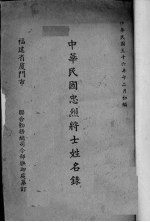 中華民國三十六年十二月初編
中華民國忠烈將士姓名錄
福建省廈門市
聯合勤務總司令部撫卹處編印